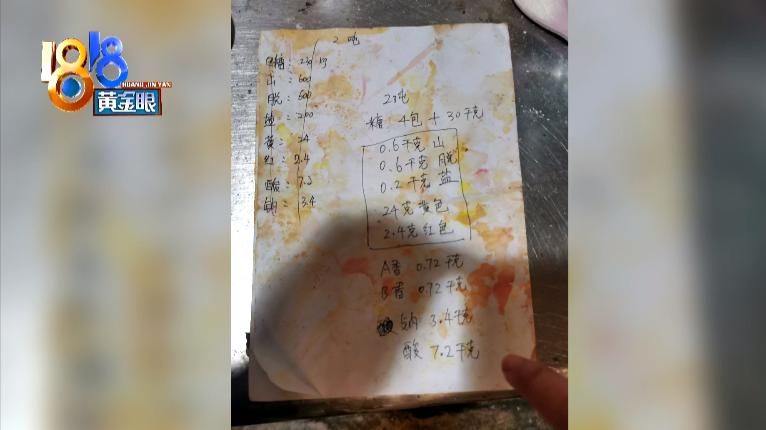 1818
HUANG JIN YAN
黄金眼
2 吨
糖:230 kg
山:600
脱:600
盐:200
黄:24
红:2.4
酸:7.2
钠:3.4
2吨
糖 4包 + 30千克
0.6千克 山
0.6千克 脱
0.2千克 盐
24克 黄色
2.4克 红色
A香 0.72千克
B香 0.72千克
钠 3.4千克
酸 7.2千克